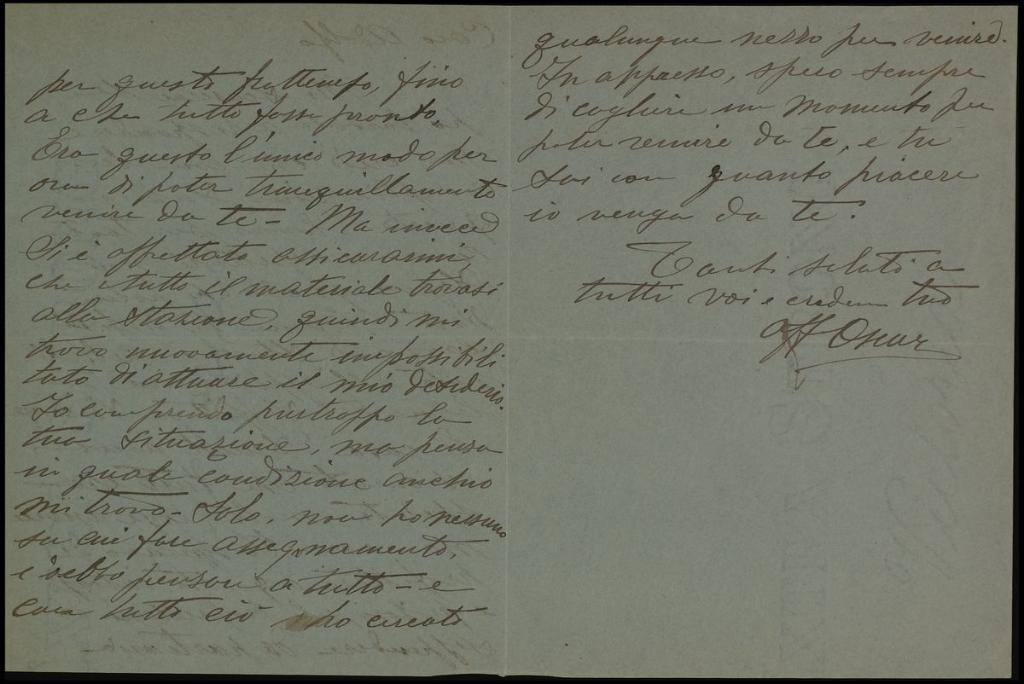 per questo frattempo, fino
a che tutto fosse pronto.
Era questo l'unico modo per
ora di poter tranquillamente
venire da te - Ma invece
si è affrettato assicurarmi,
che tutto il materiale trovasi
alla stazione, quindi mi
trovo nuovamente impossibili
tato di attuare il mio desiderio.
Io comprendo purtroppo la
tua situazione, ma pensa
in quale condizione anch'io
mi trovo - Solo, non ho nessuno
su cui fare assegnamento,
e debbo pensare a tutto - e
con tutto ciò ho cercato
qualunque mezzo per venire.
In appresso, spero sempre
di cogliere un momento per
poter venire da te, e tu
sai con quanto piacere
io venga da te.
Tanti saluti a
tutti voi e credimi tuo
aff Oscar